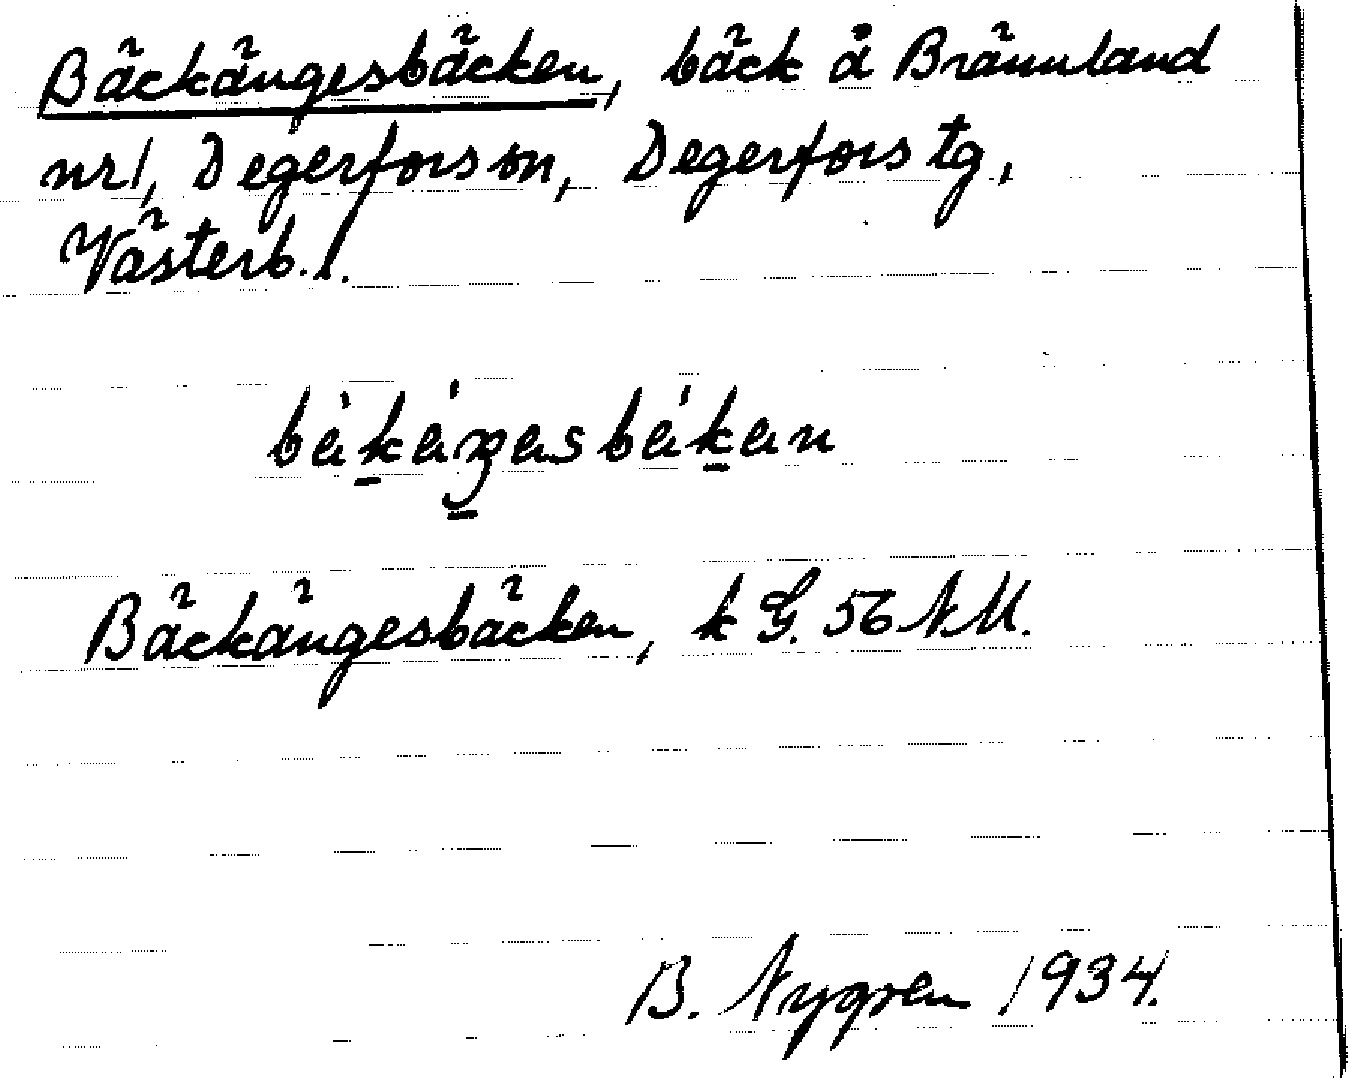 Bäckängesbäcken, bäck å Brännland
nr 1, Degerfors sn, Degerfors tg,
Västerb. l.
Bäckängesbäcken, k G. 56 NU.
B. Nygren 1934.